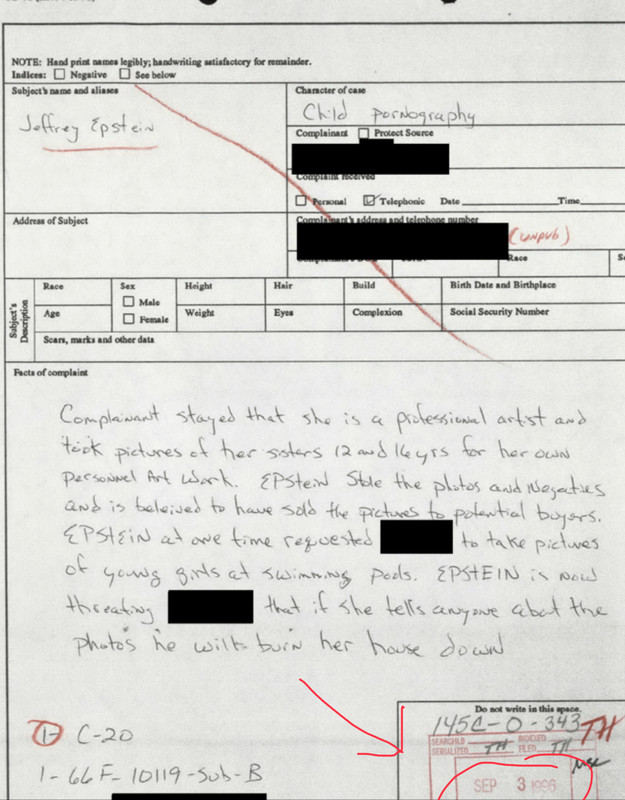 NOTE: Hand print names legibly; handwriting satisfactory for remainder.
Indices: Negative See below
Subject's name and aliases
Jeffrey Epstein
Character of case
Child Pornography
Complainant Protect Source
Complaint received
Personal Telephonic Date Time
Address of Subject
Complainant's address and telephone number
(unpub)
Race
Subject's Description
Race Sex Height Hair Build Birth Date and Birthplace
Male
Age Female Weight Eyes Complexion Social Security Number
Scars, marks and other data
Facts of complaint
Complainant stayed that she is a professional artist and
took pictures of her sisters 12 and 16 yrs for her own
personnel Art Work. EPStein Stole the photos and Negatives
and is beleived to have sold the pictures to potential buyers.
EPStEiN at one time requested to take pictures
of young girls at swimming pools. EPSTEIN is now
threating that if she tells anyone about the
photos he will burn her house down
Do not write in this space.
145C-0-343
TH
SEARCHED TH INDEXED
SERIALIZED TH FILED TH
SEP 3 1996
1- C-20
1- 66F-10119-Sub-B